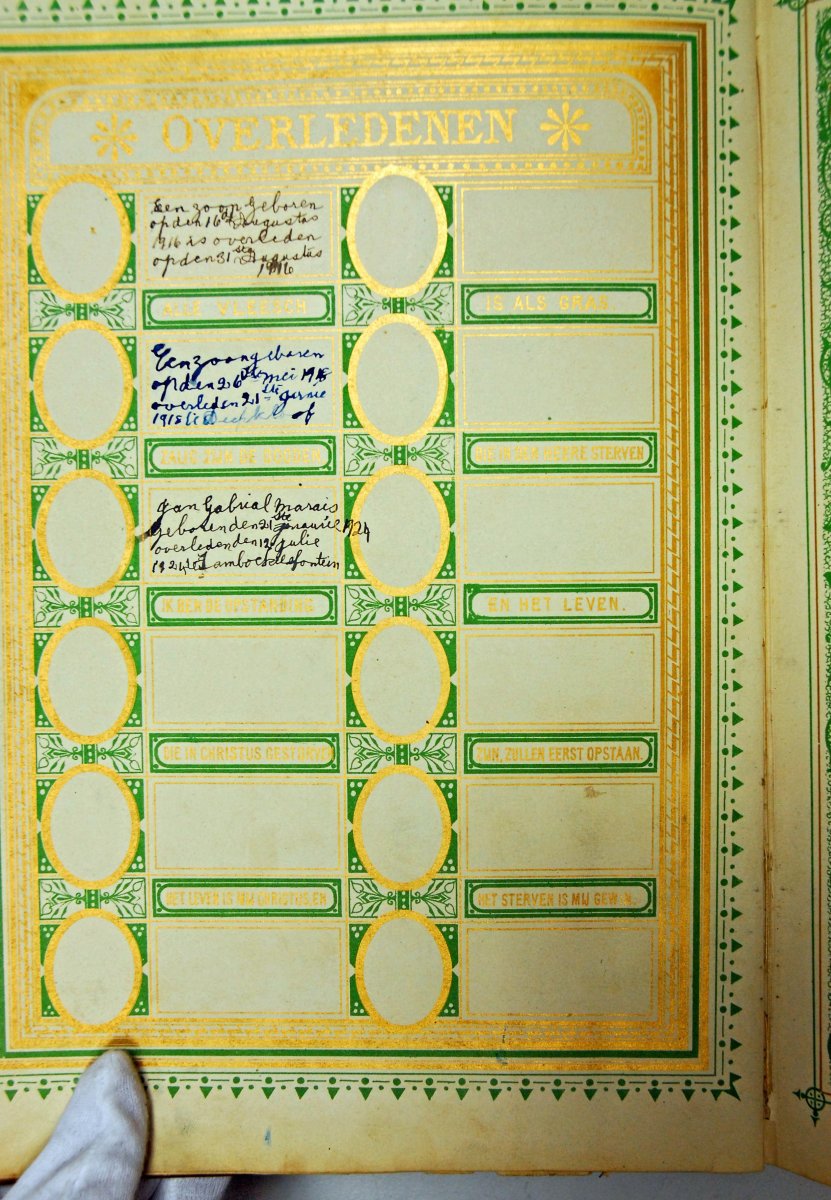 OVERLEDENEN
Een zoon geboren
op den 16de Augustus
1916 is overleden
op den 31ste Augustus
1916
ALLE VLEESCH
IS ALS GRAS.
Een zoon geboren
op den 26ste mei 1918
overleden 21ste
1918 of
ZALIG ZIJN DE DOODEN
DIE IN DEN HEERE STERVEN
Jan Gabrial Marais
geboren den 21ste 1924
overleden den 12 Julie
1924 te
IK BEN DE OPSTANDING
EN HET LEVEN.
DIE IN CHRISTUS GESTORVEN
ZIJN, ZULLEN EERST OPSTAAN.
HET LEVEN IS MIJ CHRISTUS, EN
HET STERVEN IS MIJ GEWIN.